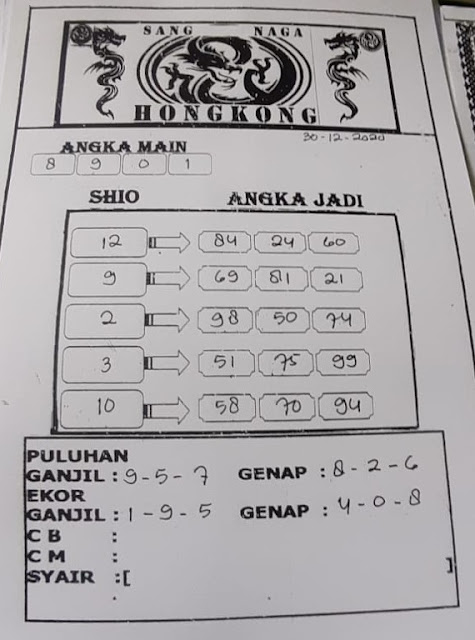 SANG NAGA
HONGKONG
30-12-2020
ANGKA MAIN
8 9 0 1
SHIO ANGKA JADI
12 84 24 60
9 69 81 21
2 98 50 74
3 51 75 99
10 58 70 94
PULUHAN
GANJIL : 9-5-7 GENAP : 8-2-6
EKOR
GANJIL : 1-9-5 GENAP : 4-0-8
C B :
C M :
SYAIR :[ ]